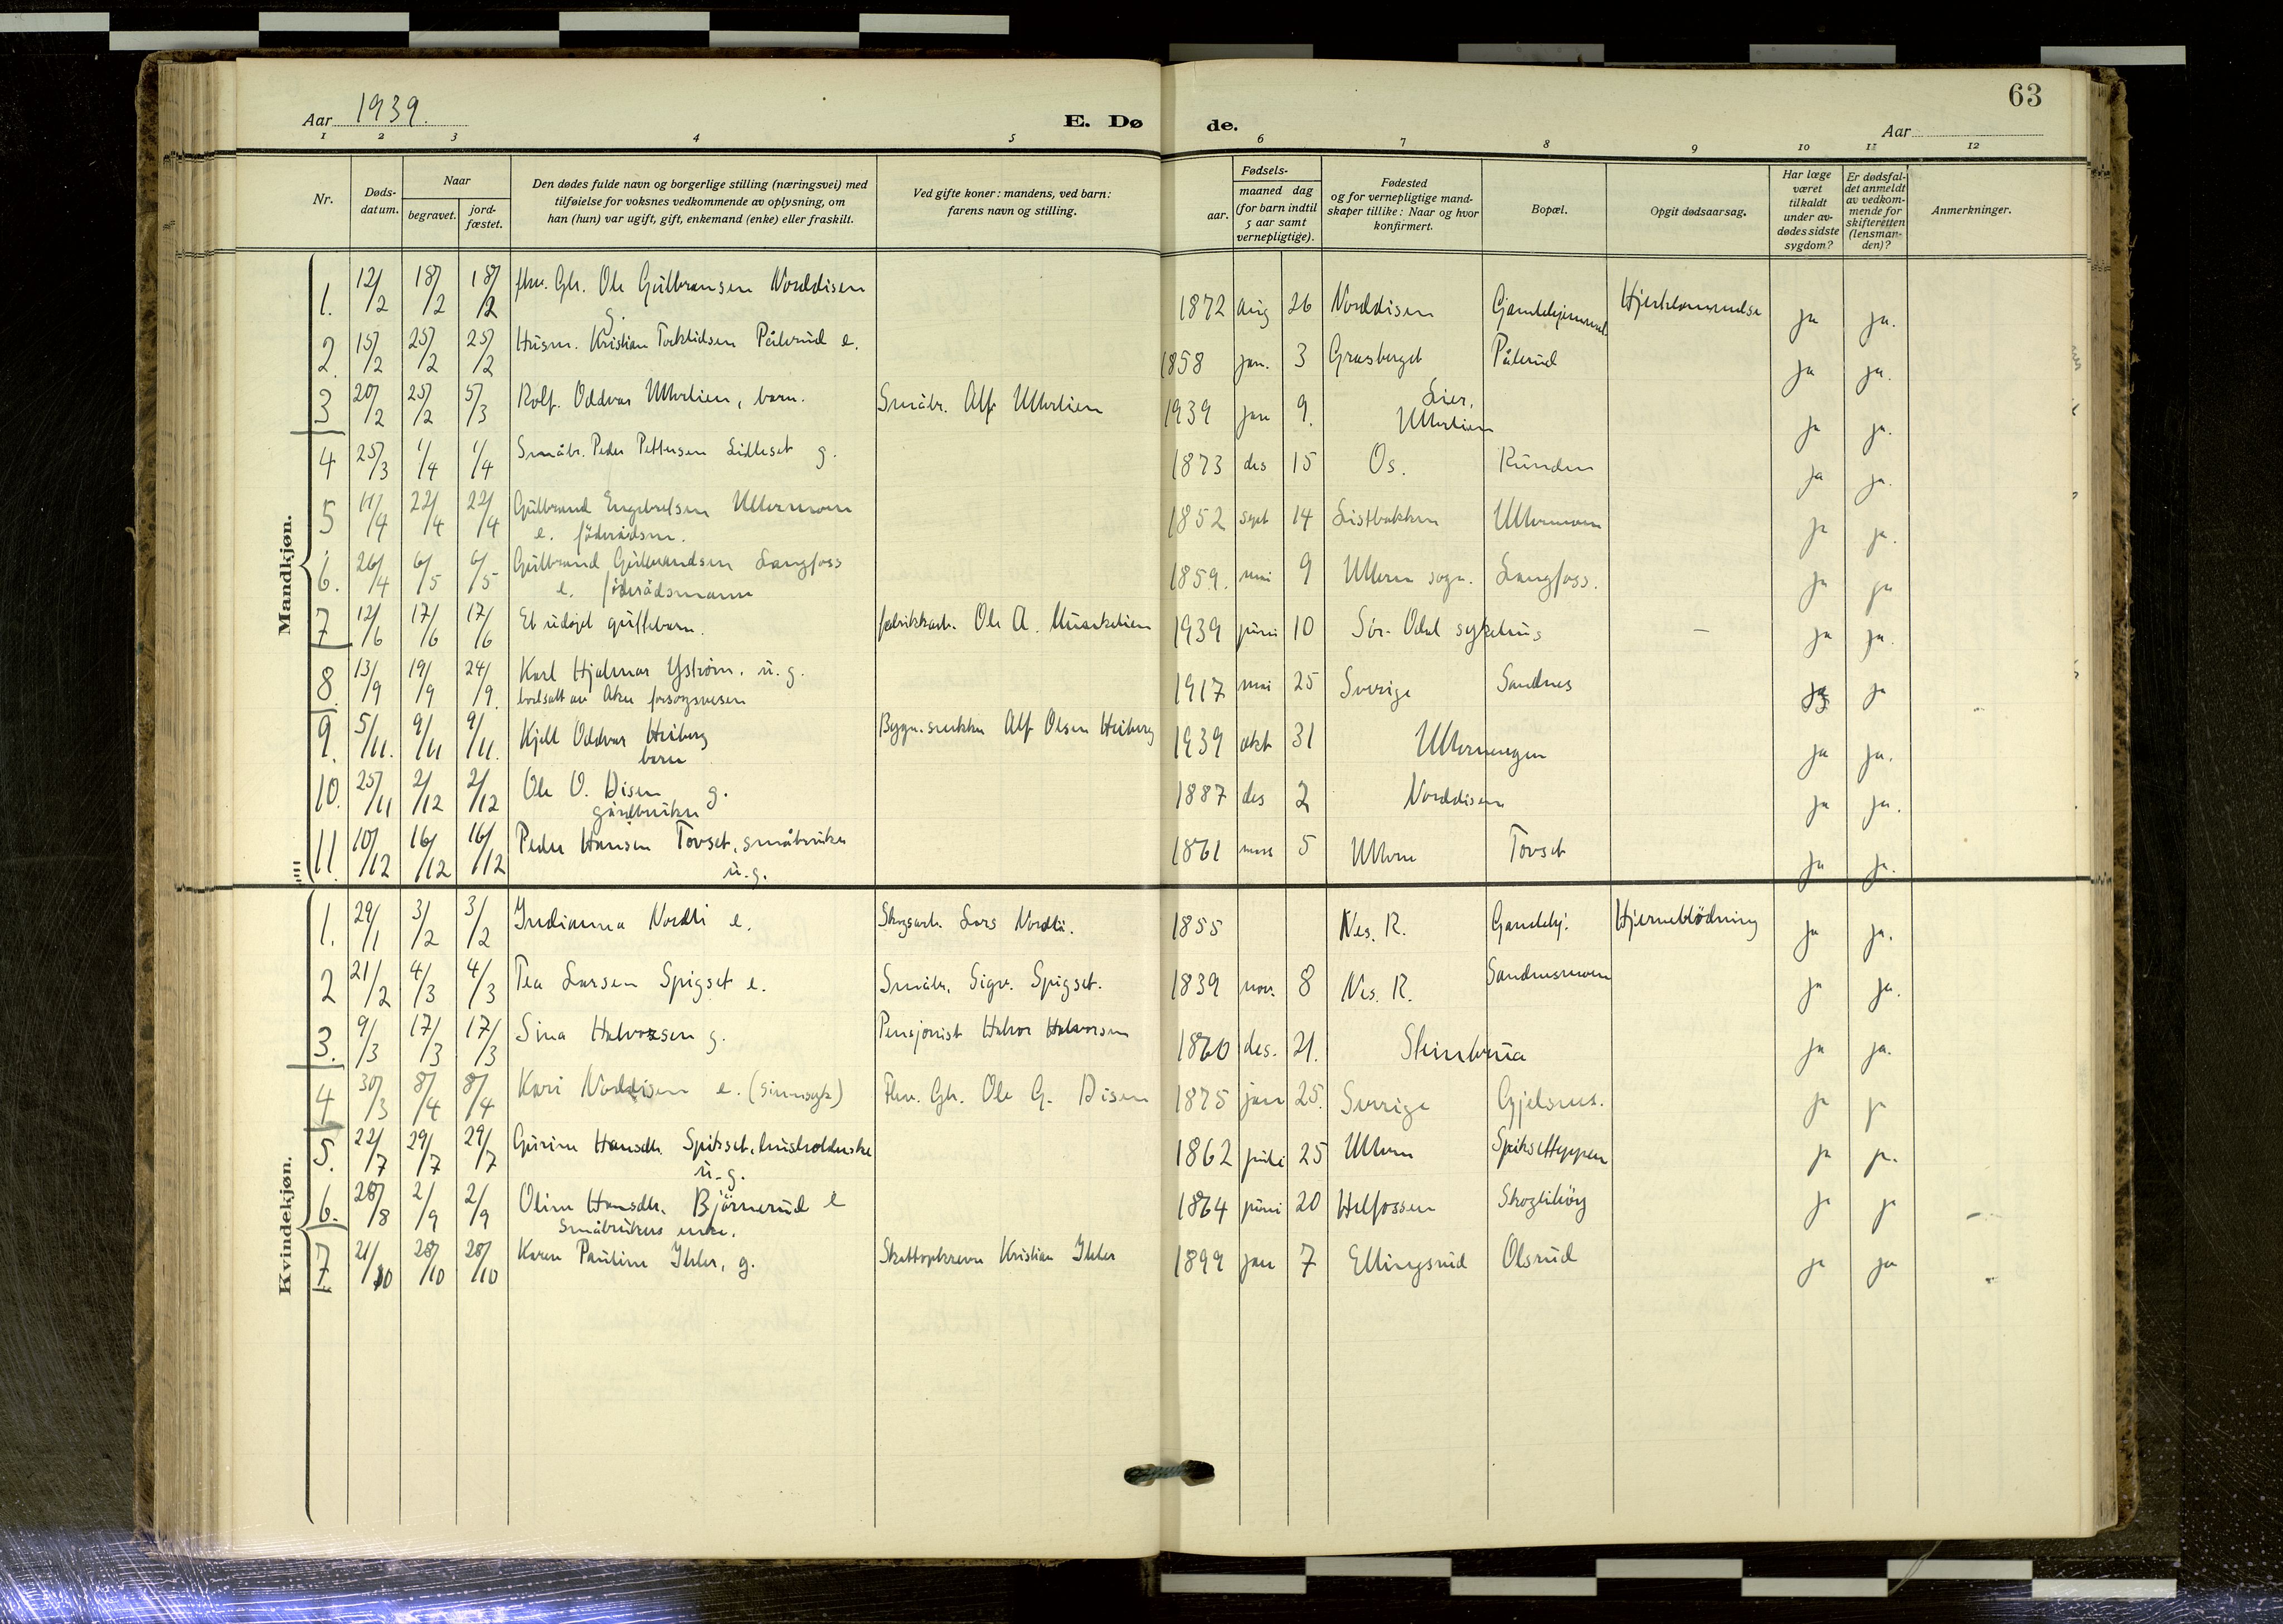 63
Aar 1939.
E. Dø de.
Aar
1 2 3 4 5 6 7 8 9 10 11 12
Nr.
Døds-
datum.
Naar
begravet.
jord-
fæstet.
Den dødes fulde navn og borgerlige stilling (næringsvei) med
tilføielse for voksnes vedkommende av oplysning, om
han (hun) var ugift, gift, enkemand (enke) eller fraskilt.
Ved gifte koner: mandens, ved barn:
farens navn og stilling.
Fødsels-
aar.
maaned dag
(for barn indtil
5 aar samt
vernepligtige).
Fødested
og for vernepligtige mand-
skaper tillike: Naar og hvor
konfirmert.
Bopæl.
Opgit dødsaarsag.
Har læge
været
tilkaldt
under av-
dødes sidste
sygdom?
Er dødsfal-
det anmeldt
av vedkom-
mende for
skifteretten
(lensman-
den)?
Anmerkninger.
Mandkjøn.
1. 12/2 18/2 18/2 fhv. Gbr. Ole Gulbransen Norddisen 1872 aug 26 Norddisen Hjertelammelse ja ja.
g.
2. 15/2 25/2 25/2 Husm. Kristian Påterud e. 1858 jan. 3 Grasberget Påterud ja ja.
3 20/2 25/2 5/3 Rolf. Oddvar Ullerlien, barn. Småbr. Alf Ullerlien 1939 jan 9. Lier, ja ja.
Ullerlien
4 25/3 1/4 1/4 Småbr. Peder Pettersen Lilleset g. 1873 des 15 Os. Runden ja ja.
5 11/4 22/4 22/4 Gulbrand Engebretsen Ullermoen 1852 sept 14 Listbakken Ullermoen ja ja.
e. föderådsm.
6. 26/4 6/5 6/5 Gulbrand Gulbrandsen Langfoss 1859. mai 9 Ullern sogn. Langfoss. ja ja
e. föderådsmann
7 12/6 17/6 17/6 Et udøpt guttebarn. fabrikkarb. Ole A. 1939 juni 10 Sör-Odal sykehus - ja ja.
8. 13/9 19/9 24/9. Karl Hjalmar Yström. u.g. 1917 mai 25 Sverige Sandnes ja ja
bortsatt av Aker forsorgsvesen
9. 5/11. 9/11 9/11. Kjell Oddvar Heiberg Bygn.snekker Alf Olsen Heiberg 1939 okt 31 Ullernengen ja ja.
barn
10. 25/11 2/12 2/12 Ole O. Disen g. 1887 des 2 Norddisen ja ja.
gårdbruker
11. 10/12 16/12 16/12 Peder Hansen Tovset, småbruker 1861 mars 5 Ullern Tovset ja ja.
u.g.
Kvindekjøn.
1. 29/1 3/2 3/2 Indianna Nordli e. Skogsarb. Lars Nordli. 1855 Nes. R. Gamlehj. Hjerneblödning ja ja.
2 21/2 4/3 4/3 Tea Larsen Spigset e. Småbr. Sigv. Spigset. 1839 nov. 8 Nes. R. Sandnesmoen ja ja.
3. 9/3 17/3 17/3 Sina Halvorsen g. Pensjonist Halvor Halvorsen 1860 des. 21. Steinbrua ja ja.
4 30/3 8/4 8/4 Kari Norddisen e. (sinnsyk) Fhv. Gbr. Ole G. Disen 1875 jan 25. Sverige Gjelsnes. ja ja
5. 22/7 29/7 29/7 Gurine Hansdtr. Spikset, husholderske 1862 juli 25 Ullern Spiksetteppen ja ja.
u.g.
6. 28/8 2/9 2/9 Oline Hansdtr. Björnerud e 1864 juni 20 Helfossen Skoglihög ja ja
Småbrukers enke.
7. 21/10 28/10 28/10 Karen Pauline Ihler, g. Skatteopkrever Kristian Ihler 1899 jan 7 Ellingsrud Olsrud ja ja